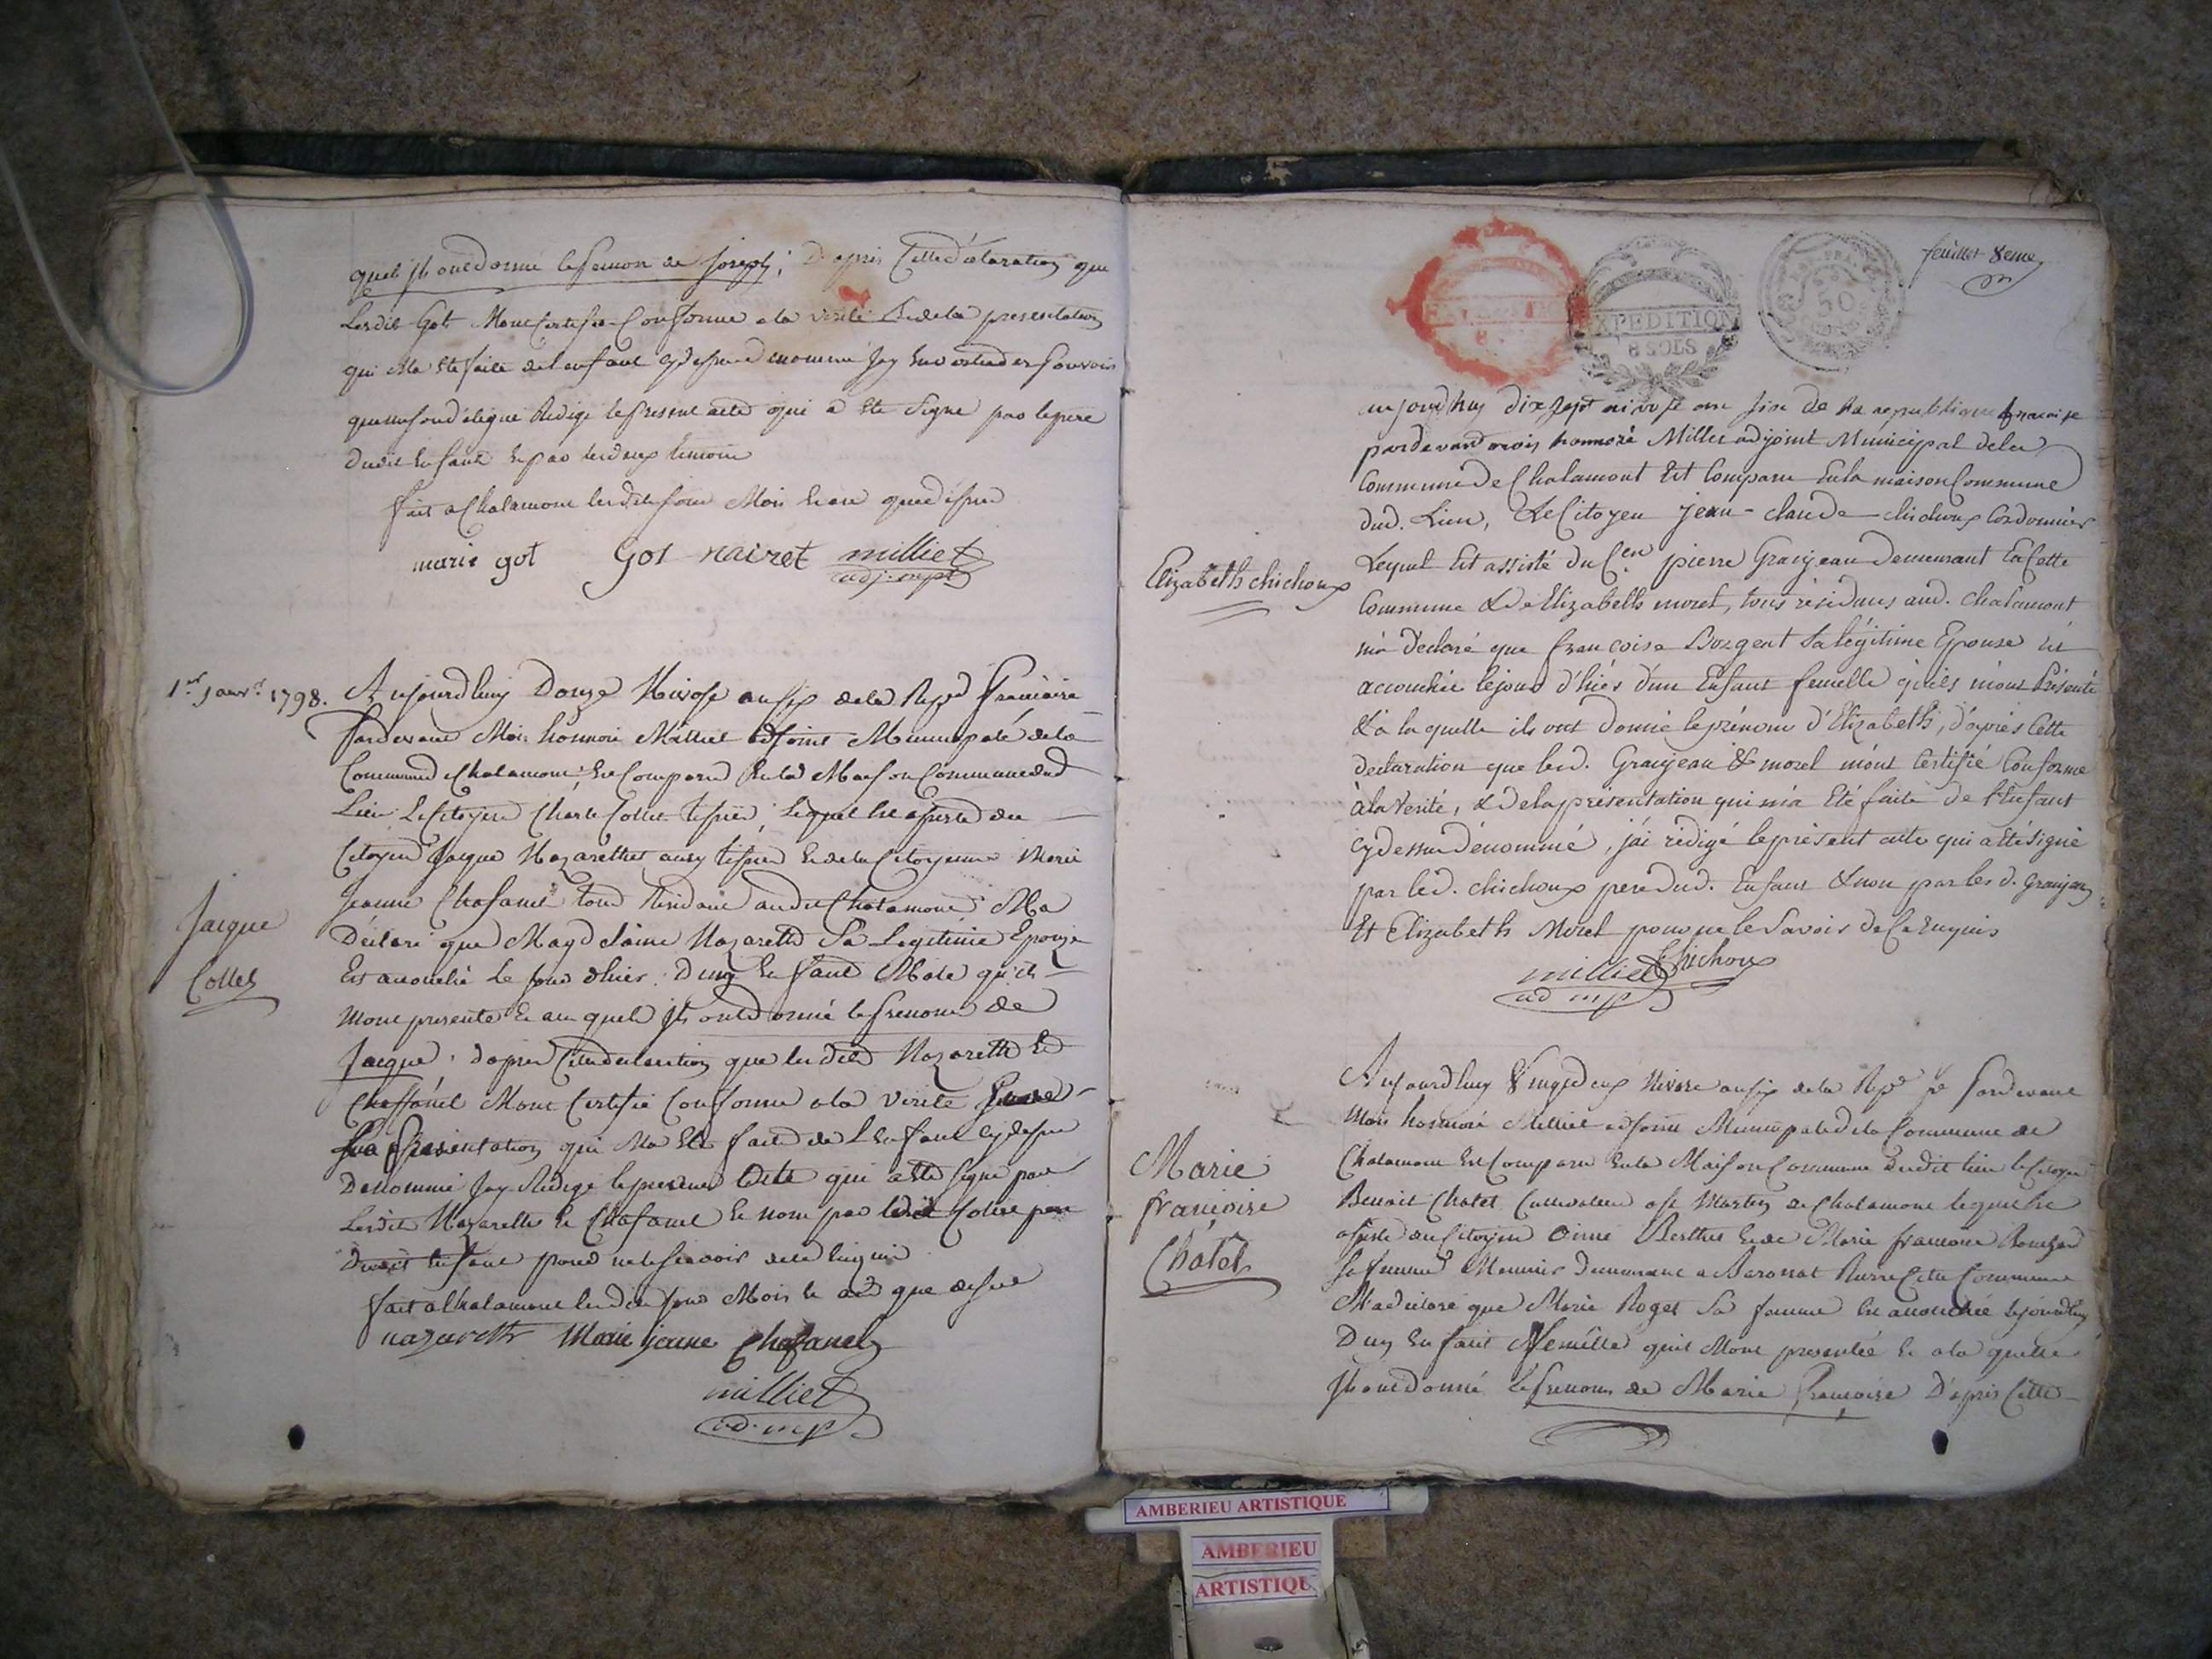 quel ils ont donné le prenon de Joseph ; d'apres Cette déclaration que
Lesdits Got Mont Certifié Conforme a la verité & de la presentation
qui Ma été faite de l'enfant cy dessus denommé Jay en vertu des pouvoirs
qui me sont délégué Redigé le présent acte qui a été signé par le pere
dudit Enfant et par les deux temoins
fait a Chalamont lesdits jour Mois et an que dessus
marie got Got nairet milliet
adj. mpal
1er Janvr 1798.
Aujourdhuy Douze Nivose an six de la Repe Francaise
Pardevant Moi honnoré Milliet adjoint Municipale de la
Commune Chalamont Est Comparu En la Maison Commune dud
Lieu Le Citoyen Charle Collet tissier, Lequel Est assisté du
Citoyen Jacque Nazareth aussy tissier Et de la Citoyenne Marie
Jeanne Chafanel tous Residant audit Chalamont Ma
Déclaré que Magdelaine Nazareth Sa Legitime Epouze
Est accouché le jour dhier Dung Enfant Male qu'ils
Mont presenté Et au quel Ils ont donné le prenom de
Jacque
Collet
Jacque, d'apres Cette declaration que lesdits Nazareth Et
Chaffanel Mont Certifié Conforme a la verité
presentation qui Ma Eté fait de L'Enfant cy dessus
Denommé Jay Redigé le present acte qui a été signé par
Lesdits Nazareth Et Chafanel Et non par ledit Collet pere
Dudit Enfant pour ne le scavoir de ce Enquis
fait a Chalamont lesdits jour Mois et an que dessus
nazareth Marie jeanne Chafanel
milliet
ad. mp
feuillet 8eme
EXPEDITION
8 SOLS
50
aujourd'huy dix sept nivose an six de la republique francaise
pardevant mois honnoré Milliet adjoint Municipal de la
Commune de Chalamont Est Comparu En la maison Commune
dud. Lieu, Le Citoyen jean-claude chichoux Cordonnier
Lequel Est assisté du Cen pierre Granjean demeurant En Cette
Elizabeth chichoux
Commune & de Elizabeth morel, tous residans aud. chalamont
m'a déclaré que francoise Borgent Sa légitime Epouse est
accouchée le jour d'hier d'un Enfant femelle qu'ils m'ont Présenté
& a la quelle ils ont donné le prénom d'Elizabeth, d'après Cette
declaration que lesd. Granjean & morel m'ont Certifié Conforme
à la Verité, & de la présentation qui m'a Eté faite de l'Enfant
cy dessus dénommé, j'ai rédigé le présent acte qui a Eté signé
par led. chichoux pere dud. Enfant & non par les d. Granjean
Et Elizabeth Morel pour ne le Savoir de Ce Enquis
milliet Chichoux
ad mp
Aujourdhuy Vingt deux Nivose an six de la Repe fe Pardevant
Moi honnoré Milliet adjoint Municipale de la Commune de
Chalamont Est Comparu En la Maison Commune dudit lieu le Citoyen
Marie
francoise
Chatel
Benoit Chatel Cultivateur a St Martin de Chalamont lequel Est
assisté du Citoyen Berthet Et de Marie francoise
Sa femme Meunier Demeurant a Cette Commune
Ma déclaré que Marie Roget Sa femme Est accouchée le jourdhuy
Dung Enfant femelle quils Mont presentée Et a la quelle
Ils ont donné le prenom de Marie Françoise D'après Cette
AMBERIEU ARTISTIQUE
AMBERIEU
ARTISTIQU